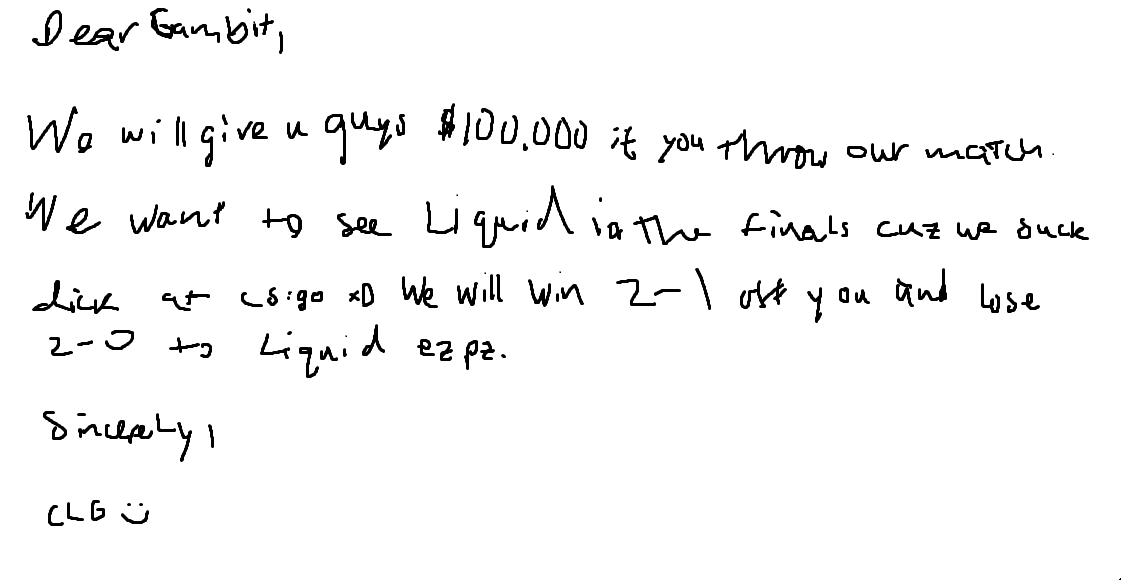 Dear Gambit,
We will give u guys $100,000 if you throw our match.
We want to see Liquid in the finals cuz we suck
dick at cs:go xD We will win 2-1 off you and lose
2-0 to Liquid ez pz.
Sincerely,
CLG :)